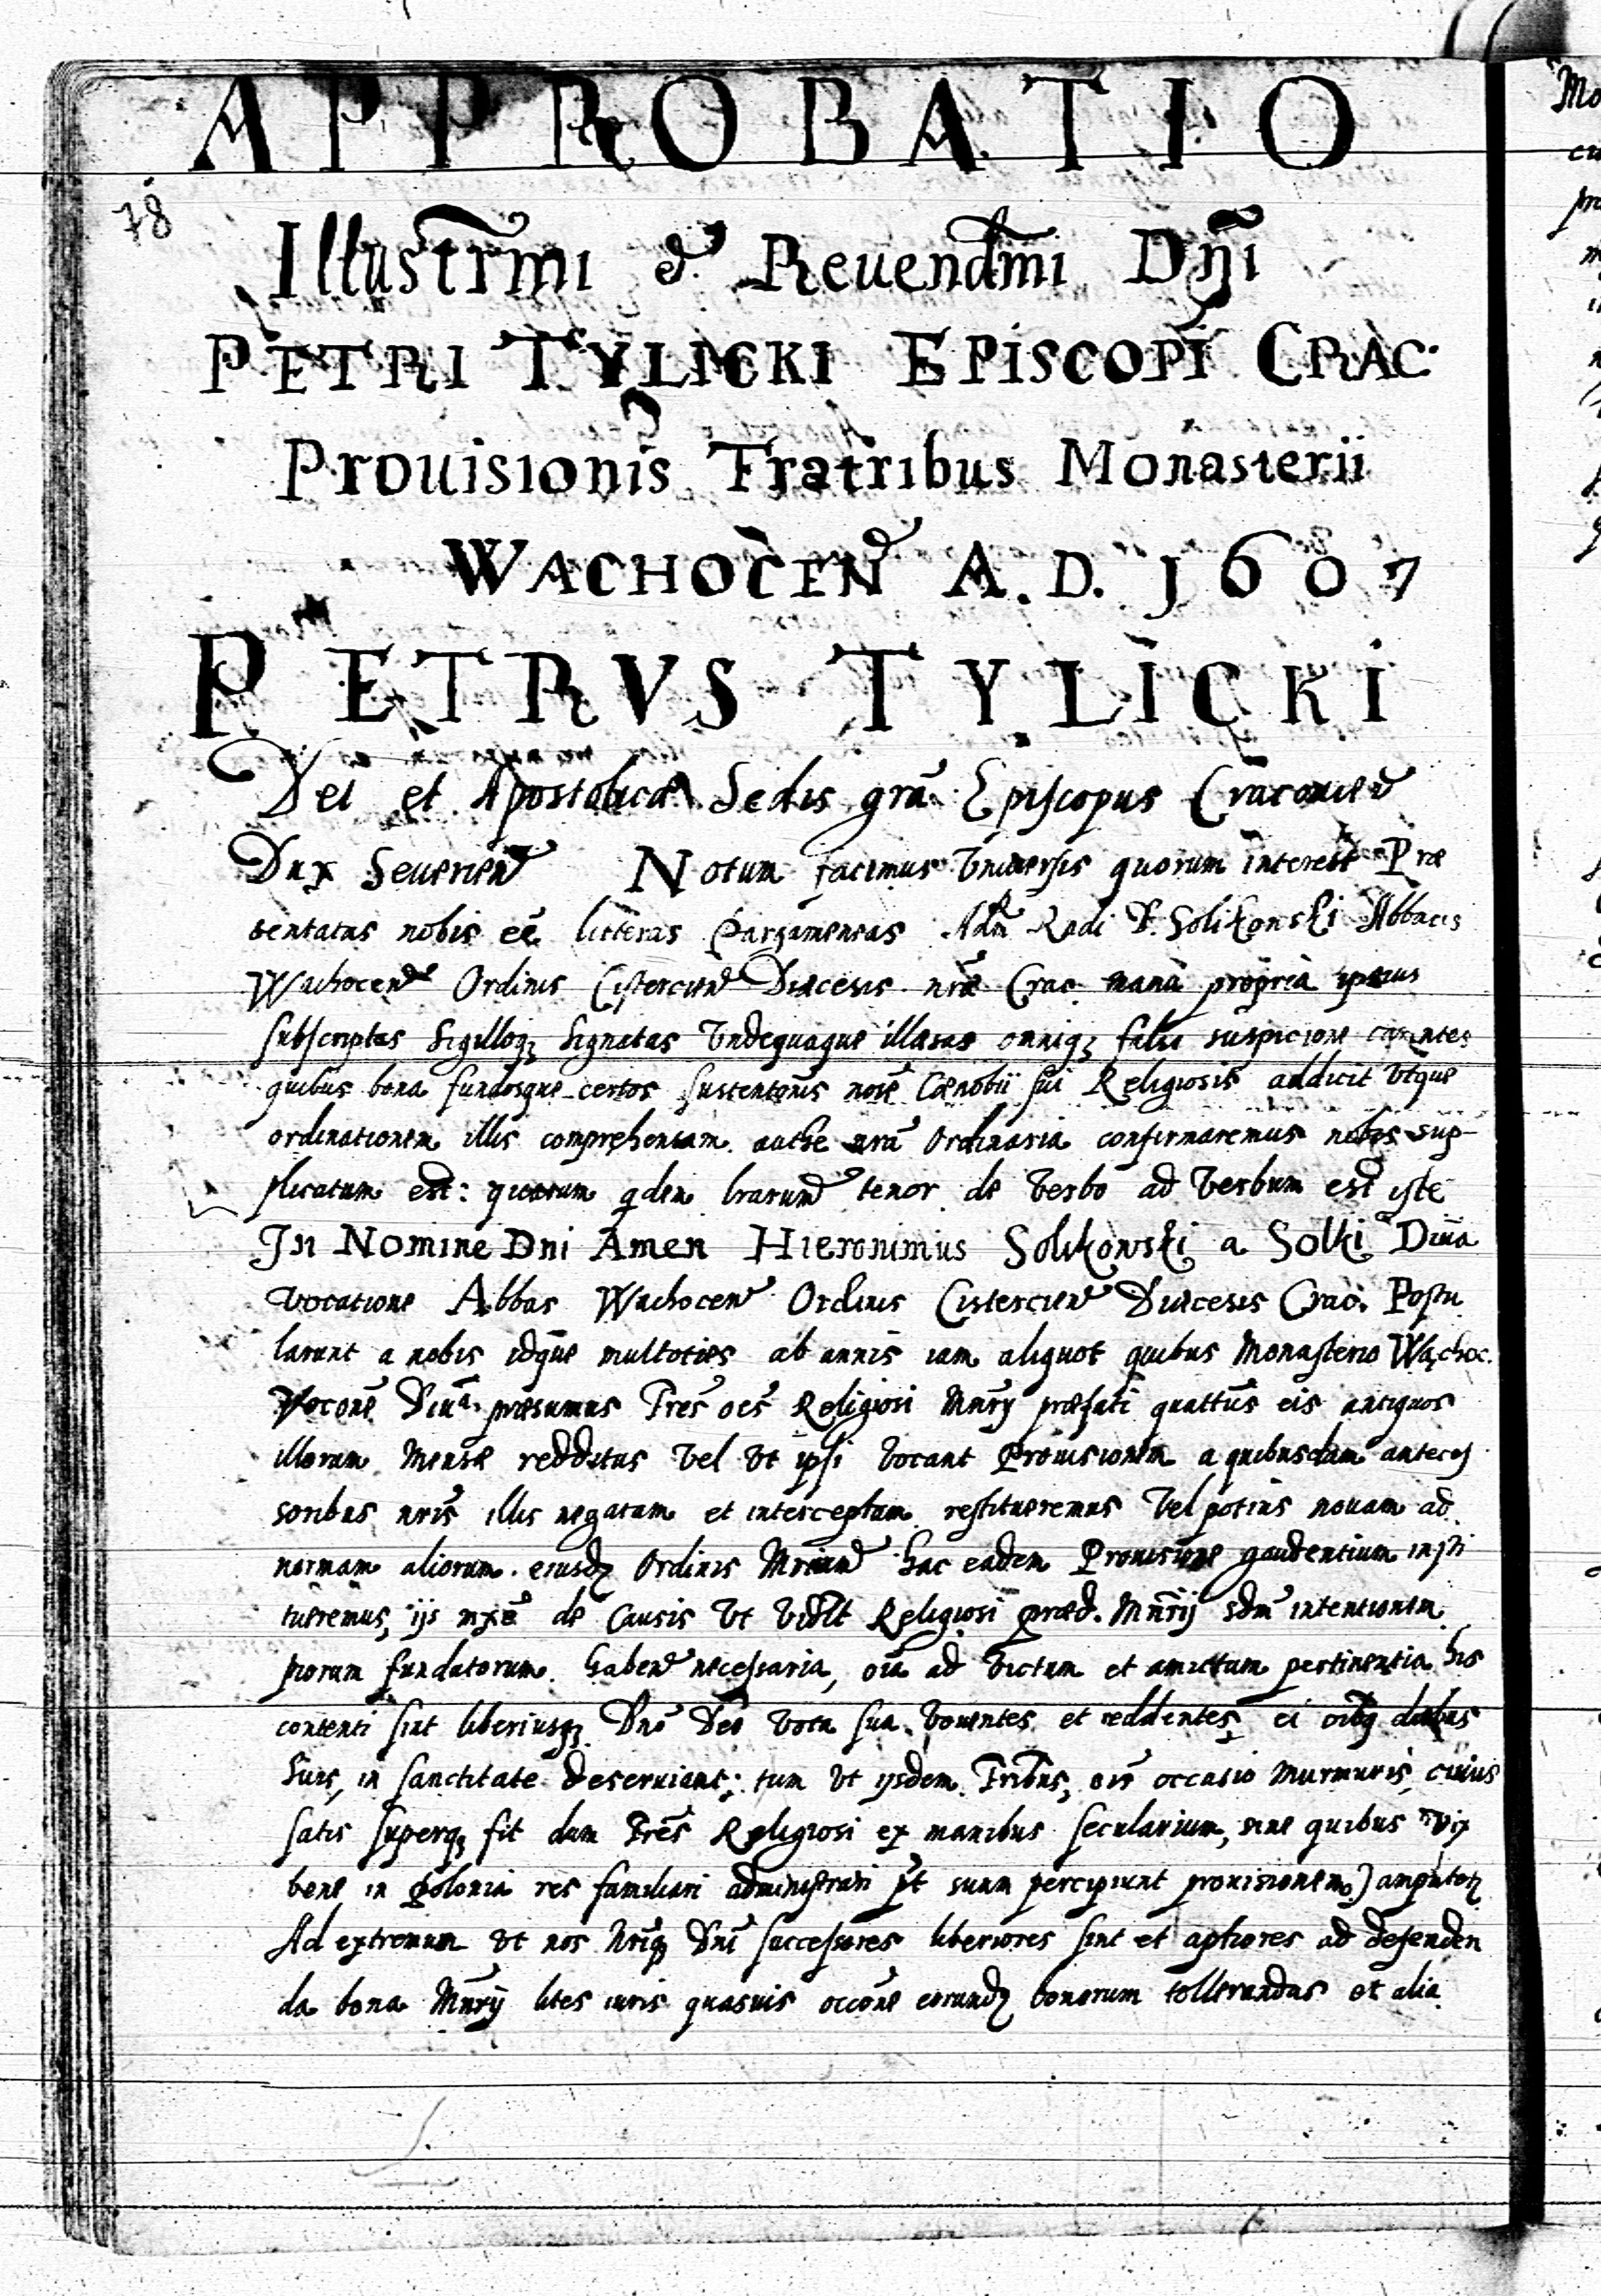 APPROBATIO
78
Illustrmi & Reuendmi Dni
PETRI TYLICKI EPISCOPI CRAC:
Prouisionis Fratribus Monasterii
WACHOCEN A. D. 1607
PETRVS TYLICKI
Dei et Apostolicæ Sedis grã Episcopus Cracouien
Dux Seuerien Notum facimus Vniuersis quorum interest Præ
sentatas nobis eẽ litteras Pargameneas Adm Rndi D. Solikonski Abbatis
Wachocen Ordinis Cistercien Diæcesis nræ Crac. manu propria ipsius
subscriptas Sigilloq; signatas Vndequaque illæsas omniq; falsi suspicione carentes
quibus bona fundosque certos sustentonis noie Cœnobii sui Religiosis addicit Vtque
ordinationem illis comprehensam authe nra Ordinaria confirmaremus nobis sup-
plicatum est: quarum qdem lrarum tenor de Verbo ad Verbum est iste
In Nomine Dni Amen Hieronimus Solikowski a Solki Diuã
vocatione Abbas Wachocen Ordinis Cistercien Diæcesis Crac. Postu
larunt a nobis idque multoties ab annis iam aliquot quibus Monasterio Wachoc.
Vocone Diuã præsumus Fres oes Religiosi Mnrij præfati quattus eis antiquos
illorum Mensæ redditus Vel Vt ipsi Vocant Prouisionem a quibusdam anteces
soribus nris illis negatam et interceptam restitueremus Vel potius nouam ad
normam aliorum eiusdz Ordinis Mriorum hac eadem Prouisione gaudentium insti
tueremus, ijs nxe de Causis Vt Vidlt Religiosi præd. Mnrij sdm intentionem
piorum fundatorum haben necessaria, oia ad Victum et amictum pertinentia his
contenti sint liberiusq; Dno Deo Vota sua Vouentes et reddentes ei oibq diebus
suis, in sanctitate deseruiant; tum Vt ijsdem Fribus, ois occasio murmuris, cuius
satis superq; fit dum Fres Religiosi ex manibus secularium, sine quibus Vix
bene in Polonia res familiari administrari pt suam percipiunt prouisionem) amputetz
Ad extremum Vt nos Nriq; Dni successores liberiores sint et aptiores ad defenden
da bona Mnrij lites iuris quasuis occone eorundz bonorum tollerandas et alia